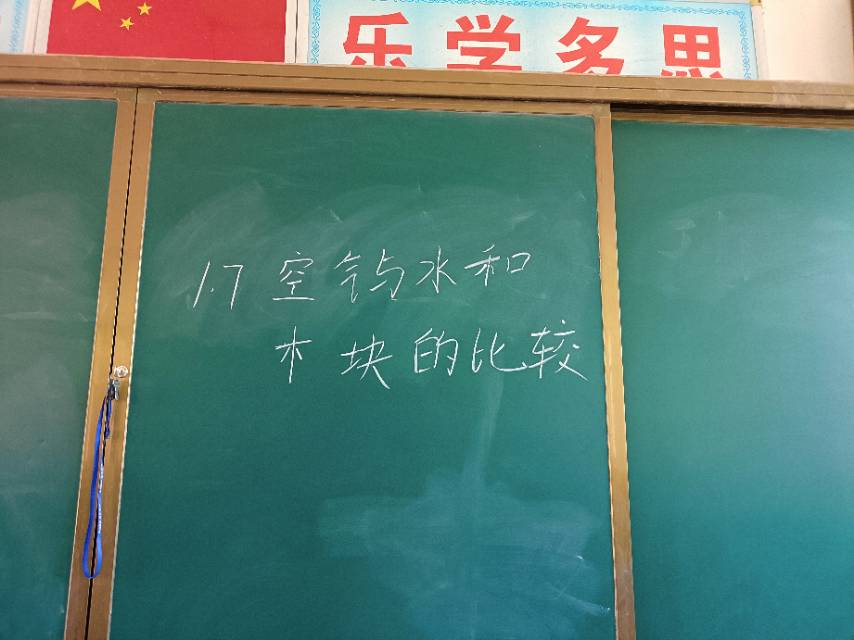 乐学多思
1.7 空气与水和
木块的比较